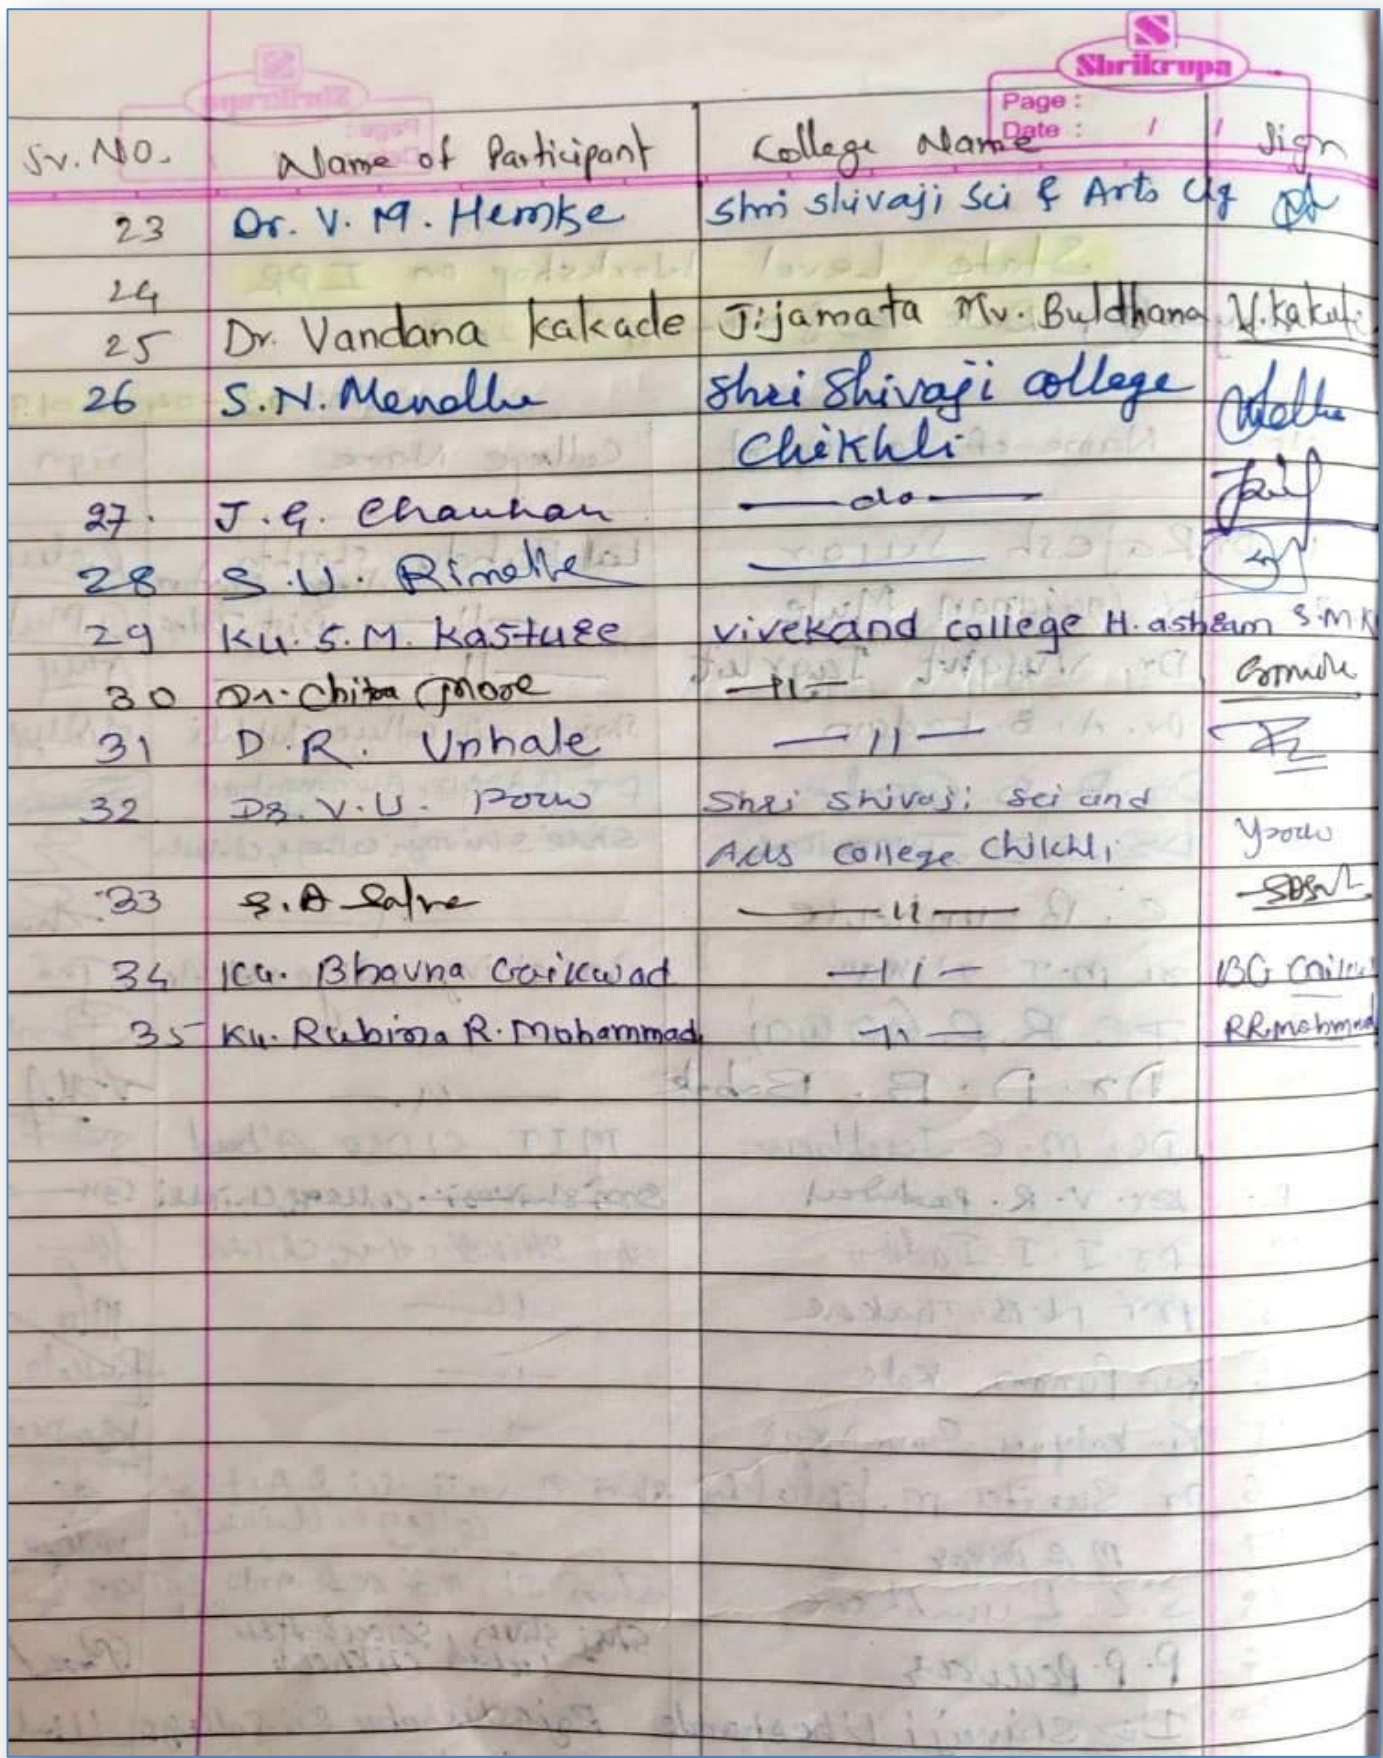 Shrikrupa
Page :
Date : / /
Sr. No. Name of Participant College Name Sign
23 Dr. V. M. Hemke Shri Shivaji Sci & Arts Clg
24
25 Dr. Vandana Kakade Jijamata Mv. Buldhana V.Kakade
26 S.N. Mendhe Shri Shivaji College
Chikhli
27. J. G. Chauhan — do —
28 S. U. Rimdhe
29 Ku. S. M. Kasture vivekand college H. ashram S.M.K
30 Dr. Chitra More — 11 —
31 D. R. Unhale — 11 —
32 Dr. V. U. Porw Shri Shivaji Sci and
Arts College Chikhli
33 S. A — 11 —
34 Ku. Bhavna Gaikwad — 11 — BG
35 Ku. Rubina R. Mohammad — 11 — RR.Mohmmad